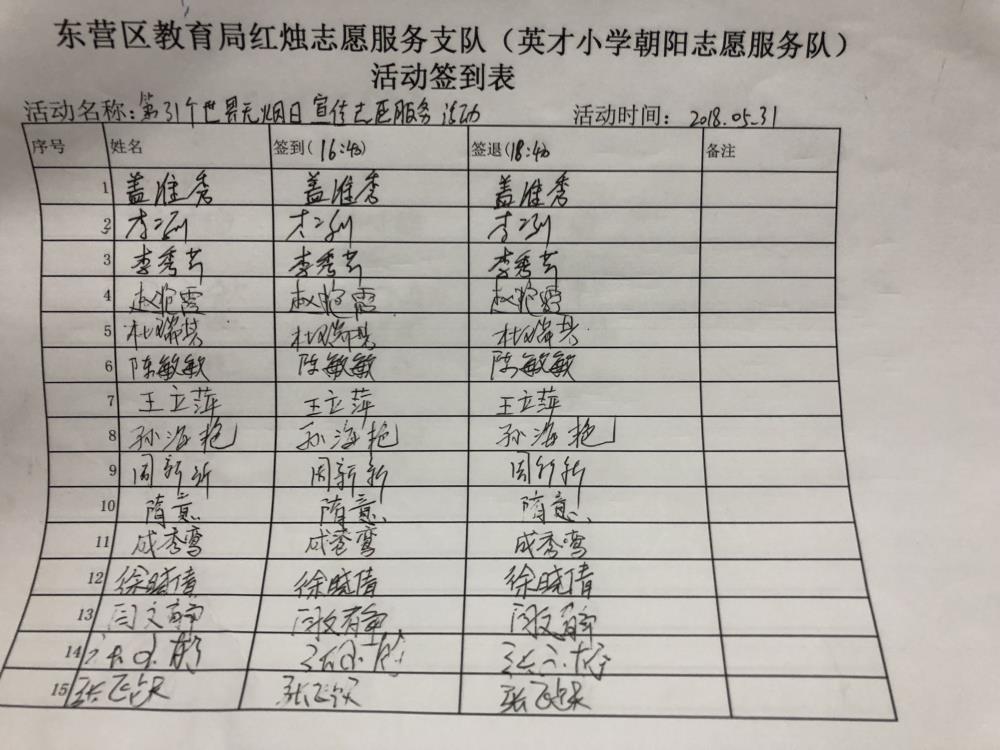 东营区教育局红烛志愿服务支队（英才小学朝阳志愿服务队）
活动签到表
活动名称：第31个世界无烟日宣传志愿服务活动 活动时间：2018.05.31
序号 姓名 签到（16:40） 签退（18:40） 备注
1 盖准秀 盖准秀 盖准秀
2
3 李秀芸 李秀芸 李秀芸
4 赵艳霞 赵艳霞 赵艳霞
5 杜瑞其 杜瑞其 杜瑞其
6 陈敏敏 陈敏敏 陈敏敏
7 王立萍 王立萍 王立萍
8 孙海艳 孙海艳 孙海艳
9 周新新 周新新 周新新
10 隋意 隋意 隋意
11 成秀鸾 成秀鸾 成秀鸾
12 徐晓倩 徐晓倩 徐晓倩
13 闫文静 闫文静 闫文静
14 张 张 张
15 张 张 张